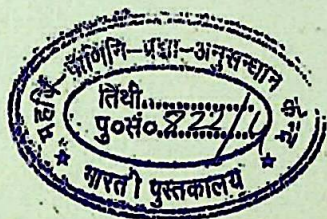 महर्षि-पाणिनि-प्रज्ञा-अनुसन्धान
तिथी..............
पु०सं० 822/
भारती पुस्तकालय